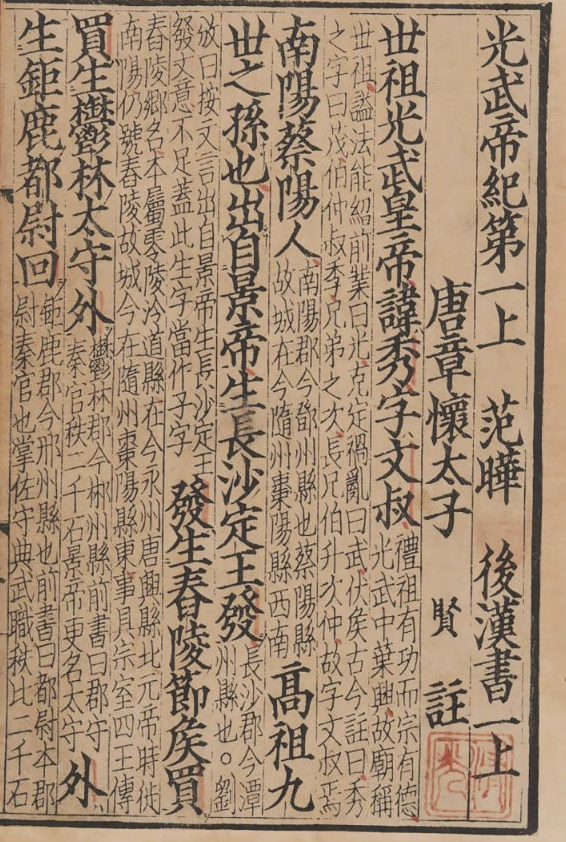 光武帝紀第一上　范曄　後漢書一上
唐章懷太子　賢　註
世祖光武皇帝諱秀字文叔
禮祖有功而宗有德
光武中葉興故廟稱
世祖謚法能紹前業曰光克定禍亂曰武伏侯古今註曰秀
之字曰茂伯仲叔季兄弟之次長兄伯升次仲故字文叔焉
南陽蔡陽人
南陽郡今鄧州縣也蔡陽縣
故城在今隨州棗陽縣西南
高祖九
世之孫也出自景帝生長沙定王發
長沙郡今潭
州縣也。劉
攽曰按文言出自景帝生長沙定王
發文意不足蓋此生字當作子字
發生舂陵節侯買
舂陵鄉名本屬零陵泠道縣在今永州唐興縣北元帝時徙
南陽仍號舂陵故城今在隨州棗陽縣東事具宗室四王傳
買生鬱林太守外
鬱林郡今郴州縣前書曰郡守
秦官秩二千石景帝更名太守
外
生鉅鹿都尉回
鉅鹿郡今邢州縣也前書曰都尉本郡
尉秦官也掌佐守典武職秩比二千石